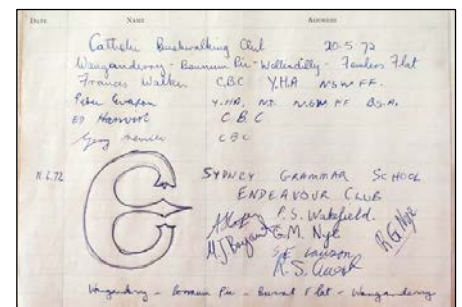 DATE NAME ADDRESS
Catholic Bushwalking Club 20-5-72
Wanganderry - Bonnum Pic - Wollondilly - Fowlers Flat
Frances Walker C.B.C Y.H.A N.S.W F.F.
Peter Y.HA, NT. NSW FF B.S.A.
C.B.C
C B C
72 SYDNEY GRAMMAR SCHOOL
ENDEAVOUR CLUB
P.S. Wakefield.
M J Bryant G.M. Nye R G Nye
Lawson
R.S.
Wanganderry - Bonnum Pic - Burnt Flat - Wanganderry